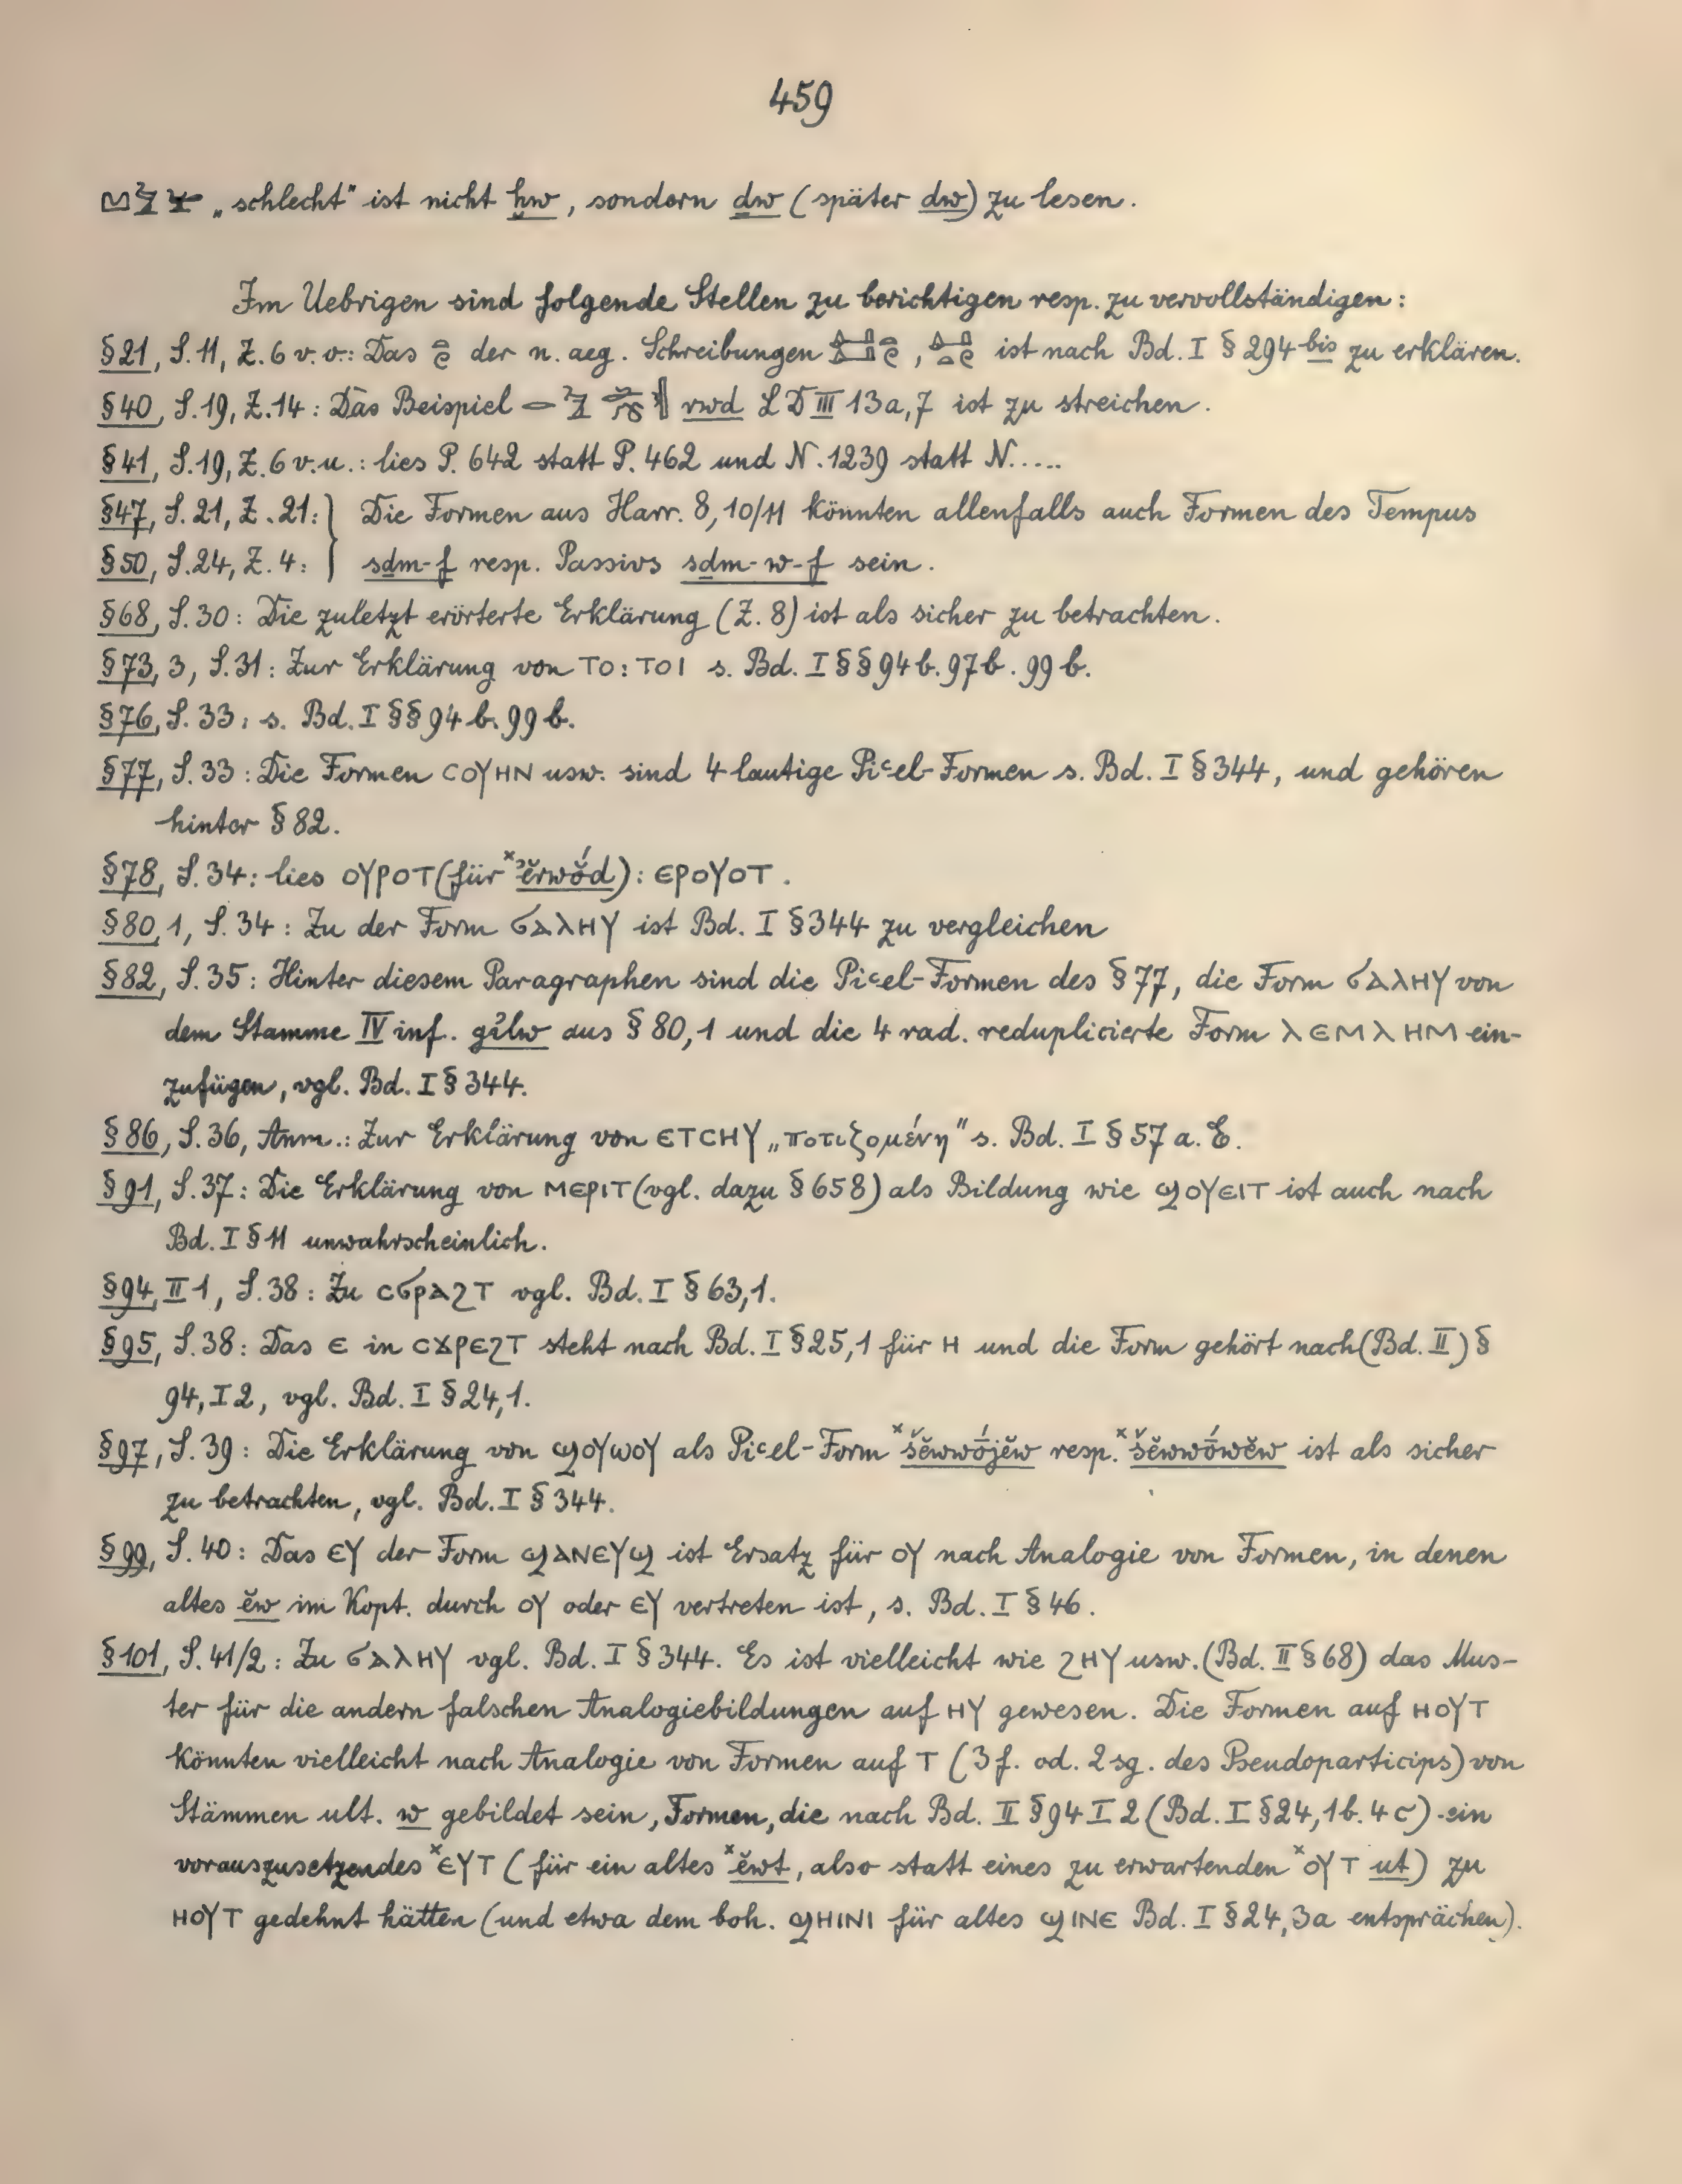 459
„schlecht" ist nicht ḫw, sondern ḏw (später dw) zu lesen.
Im Uebrigen sind folgende Stellen zu berichtigen resp. zu vervollständigen:
§21, S. 11, Z. 6 v. o.: Das der n. aeg. Schreibungen , ist nach Bd. I § 294 bis zu erklären.
§40, S. 19, Z. 14: Das Beispiel rwd LD III 13a, 7 ist zu streichen.
§41, S. 19, Z. 6 v. u.: lies P. 642 statt P. 462 und N. 1239 statt N.....
§47, S. 21, Z. 21: } Die Formen aus Harr. 8, 10/11 könnten allenfalls auch Formen des Tempus
§50, S. 24, Z. 4: } sḏm-f resp. Passivs sḏm-w-f sein.
§68, S. 30: Die zuletzt erörterte Erklärung (Z. 8) ist als sicher zu betrachten.
§73, 3, S. 31: Zur Erklärung von ⲧⲟ: ⲧⲟⲓ s. Bd. I §§ 94 b. 97 b. 99 b.
§76, S. 33: s. Bd. I §§ 94 b. 99 b.
§77, S. 33: Die Formen ⲥⲟⲩⲏⲛ usw. sind 4 lautige Piꜥel-Formen s. Bd. I § 344, und gehören
hinter § 82.
§78, S. 34: lies ⲟⲩⲣⲟⲧ (für ˣꜣĕrwŏ́d): ⲉⲣⲟⲩⲟⲧ.
§80, 1, S. 34: Zu der Form ϭⲁⲗⲏⲩ ist Bd. I § 344 zu vergleichen
§82, S. 35: Hinter diesem Paragraphen sind die Piꜥel-Formen des § 77, die Form ϭⲁⲗⲏⲩ von
dem Stamme IV inf. gꜣlw aus § 80, 1 und die 4 rad. reduplicierte Form ⲗⲉⲙⲗⲏⲙ ein-
zufügen, vgl. Bd. I § 344.
§86, S. 36, Anm.: Zur Erklärung von ⲉⲧⲥⲏⲩ „ποτιζομένη" s. Bd. I § 57 a. E.
§91, S. 37: Die Erklärung von ⲙⲉⲣⲓⲧ (vgl. dazu § 658) als Bildung wie ϣⲟⲩⲉⲓⲧ ist auch nach
Bd. I § 11 unwahrscheinlich.
§94, II 1, S. 38: Zu ⲥϭⲣⲁϩⲧ vgl. Bd. I § 63, 1.
§95, S. 38: Das ⲉ in ⲥϫⲣⲉϩⲧ steht nach Bd. I § 25, 1 für ⲏ und die Form gehört nach (Bd. II) §
94, I 2, vgl. Bd. I § 24, 1.
§97, S. 39: Die Erklärung von ϣⲟⲩⲱⲟⲩ als Piꜥel-Form ˣšĕwwṓjĕw resp. ˣšĕwwṓwĕw ist als sicher
zu betrachten, vgl. Bd. I § 344.
§99, S. 40: Das ⲉⲩ der Form ϣⲁⲛⲉⲩϣ ist Ersatz für ⲟⲩ nach Analogie von Formen, in denen
altes ĕw im Kopt. durch ⲟⲩ oder ⲉⲩ vertreten ist, s. Bd. I § 46.
§101, S. 41/2: Zu ϭⲁⲗⲏⲩ vgl. Bd. I § 344. Es ist vielleicht wie ϩⲏⲩ usw. (Bd. II § 68) das Mus-
ter für die andern falschen Analogiebildungen auf ⲏⲩ gewesen. Die Formen auf ⲏⲟⲩⲧ
könnten vielleicht nach Analogie von Formen auf ⲧ (3 f. od. 2 sg. des Pseudoparticips) von
Stämmen ult. w gebildet sein, Formen, die nach Bd. II § 94 I 2 (Bd. I § 24, 1 b. 4 c) ein
vorauszusetzendes ˣⲉⲩⲧ (für ein altes ˣĕwt, also statt eines zu erwartenden ˣⲟⲩⲧ ut) zu
ⲏⲟⲩⲧ gedehnt hätten (und etwa dem boh. ϣⲏⲓⲛⲓ für altes ϣⲓⲛⲉ Bd. I § 24, 3a entsprächen).